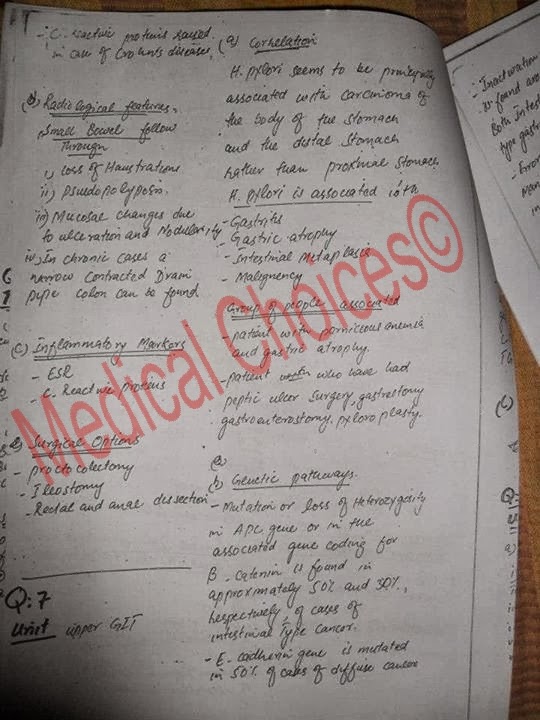 :- C. reactive proteins raised
in case of Crohnts diseases.
(b) Radiological features.
Small Bowel follow
Through
i) Loss of Haustrations
ii) Psuedopolyposn.
iii) Mucosal changes due
to ulceration and Nodularity
iv) In chronic cases a
narrow contracted Drain
pipe colon can be found
(c) Inflammatory Markers
- ESR
- C. Reactive proteins
d) Surgical Options
- proctocolectomy
- Ileostomy
- Rectal and anal dissection
Q:7
Unit upper GIT
(a) Correlation
H. pylori seems to be primiprily
associated with carcinoma of
the body of the stomach
and the distal stomach
rather than proximal stomach
H. pylori is associated with
- Gastrits
- Gastric atrophy
- Intestinal Metaplasia
- Malignency
Group of people associated
- patient with porniceous anemia
and gastric atrophy.
- patient who have had
peptic ulcer surgery, gastrectomy
gastroenterostomy. pyloroplasty.
(b) Genetic pathways.
- Mutation or loss of Heterozygosity
in APC gene or in the
associated gene coding for
B - Catenin is found in
approximately 50% and 30%,
respectively, of cases of
intestinal Type cancer.
- E. cadherin gene is mutated
in 50% of cases of diffuse cancer
:- Inactivation
is found
Both Intes
type gast
- Error
in
(C)
Q:
Medical Choices©